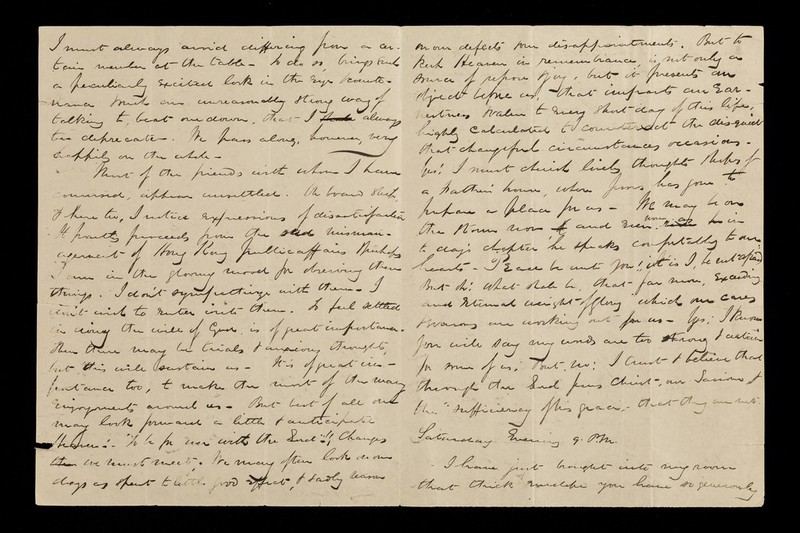 I must always avoid differing from a cer-
tain member at the table - to do so, brings such
a peculiarly excited look in the eye & counte-
nance & such an unreasonably strong way of
talking to beat one down, that I always
to deprecate. We pass along, however, very
happily on the whole -
Most of the friends with whom I have
conversed, appear unsettled. On board ship,
& here too, I notice expressions of dissatisfaction
It proceeds from the misman-
agement of Hong Kong public affairs Perhaps
I am in the gloomy mood for observing these
things. I don't sympathize with them - I
don't wish to enter into them. To feel settled
in doing the will of God, is of great importance.
Then there may be trials & anxious thoughts,
but this will sustain us - It is of great im-
portance too, to make the most of the many
enjoyments around us - But best of all one
may look forward a little & anticipate
Heaven - "To be for ever with the Lord"! Changes
we must meet. We may often look on our
days as spent to little good effect, & sadly
on our defects & our disappointments. But to
keep Heaven in remembrance, is not only a
source of repose & joy, but it presents an
object before us, that imparts an ear-
nestness & value to every short day of this life,
highly calculated to counteract the disquiet
that changeful circumstances occasions -
Yes! I must cherish lively thoughts
a Father's house, where Jesus has gone to
prepare a place for us - We may be on
the now and even as in
today's chapter he speaks comfortably to our
hearts - "Peace be unto you! it is I, be not afraid
But oh! what shall be, that far more, exceeding
and Eternal weight of glory which our cares
& are working out for us - Yes; I know
you will say my words are too strong &
for some of us, But, no; I trust & believe that
through the Lord Jesus Christ, our Saviour &
the "sufficiency of his grace," that they are not.
Saturday Evening 9. PM.
I have just brought into my room
that thick you have so generously